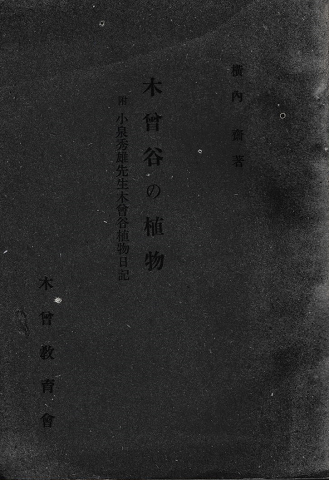 横内齋著
木曾谷の植物
附 小泉秀雄先生木曾谷植物日記
木曾教育會